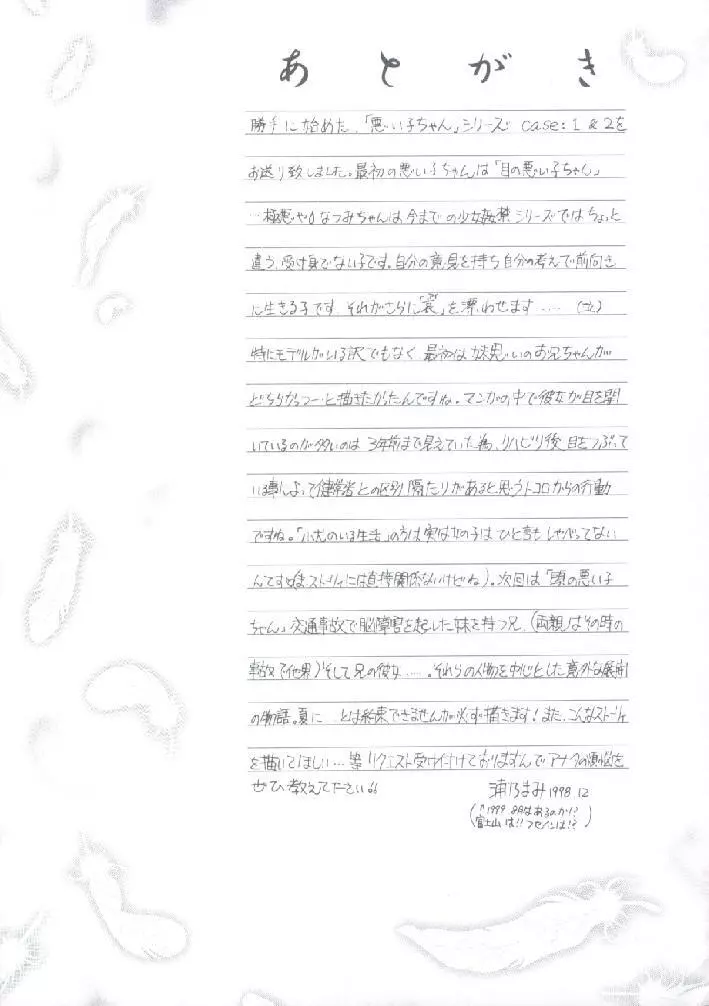 あとがき
勝手に始めた、「悪い子ちゃん」シリーズ case:1&2を
お送り致しました。最初の悪い子ちゃんは「目の悪い子ちゃん」
なつみちゃんは今までの少女シリーズではちょっと
違う、受け身でない子です。自分の意見を持ち自分の考えで前向き
に生きる子です。それがさらに「哀」を漂わせます……
特にモデルがいる訳でもなく 最初は妹思いのお兄ちゃんが
と描きたかったんですね。マンガの中で彼女が目を開
いているのが多いのは 3年前まで見えていた為、リハビリ後 目をつぶって
いる事によって健常者との区別 隔たりがあると思うトコロからの行動
ですね。「のいる生活」の方は実は女の子は ひと言も しゃべってない
んです(ストーリィには直接関係ないけどね)。次回は「頭の悪い子
ちゃん」交通事故で脳障害を起した妹を持つ兄、(両親はその時の
事故で他界)そして兄の彼女……。それらの人物を中心とした意外な展開
の物語。夏に…とは約束できませんが必ず描きます!また、こんなストーリィ
を描いてほしい…等リクエスト受け付けておりますんでアナタの を
ぜひ教えてください
まみ 1998.12
(↑1999 8月はあるのか!?
富士山は!! フセインは!?)